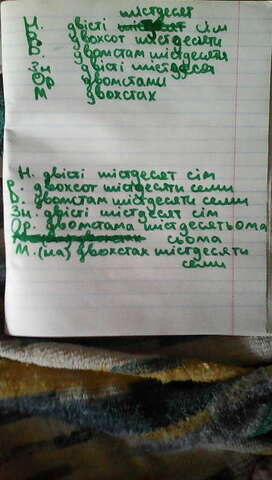 шістдесят
Н. двісті сім
Р. двохсот шістдесяти
Д. двомстам шістдесяти
Зн. двісті шістдеся
Ор двомстами
М двохстах
Н. двісті шістдесят сім
Р. двохсот шістдесяти семи
Д. двомстам шістдесяти семи
Зн. двісті шістдесят сім
Ор. двомстама шістдесятьома
сьома
М. (на) двохстах шістдесяти
семи